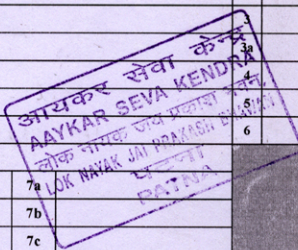 3
3a
4
5
6
7a
7b
7c
आयकर सेवा केन्द्र
AAYKAR SEVA KENDRA
लोक नायक जय प्रकाश भवन,
LOK NAYAK JAI PRAKASH BHAWAN
पटना
PATNA